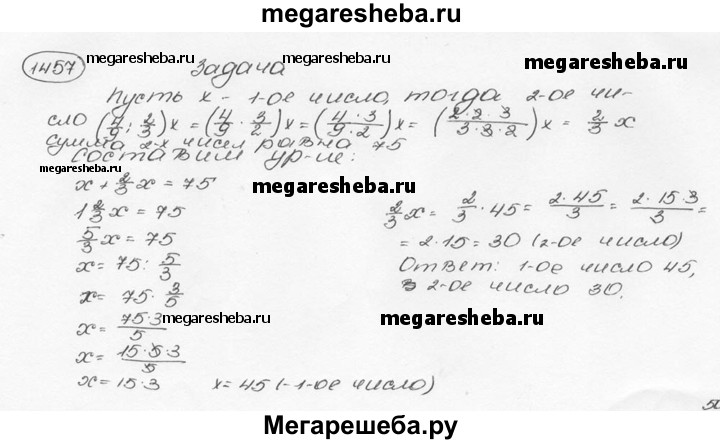 megaresheba.ru
1457 megaresheba.ru Задача megaresheba.ru
Пусть x - 1-ое число, тогда 2-ое чи-
сло (4/9 : 2/3)x = (4/9 · 3/2)x = (4·3/9·2)x = (2·2·3/3·3·2)x = 2/3 x
сумма 2-х чисел равна 75
составим ур-ие: megaresheba.ru
x + 2/3 x = 75
1 2/3 x = 75
5/3 x = 75
x = 75 : 5/3
x = 75 · 3/5
x = 75·3/5 megaresheba.ru
x = 15·5·3/5
x = 15·3 x = 45 (-1-ое число)
2/3 x = 2/3 · 45 = 2·45/3 = 2·15·3/3 =
= 2·15 = 30 (2-ое число)
Ответ: 1-ое число 45,
2-ое число 30.
megaresheba.ru
50
Мегарешеба.ру